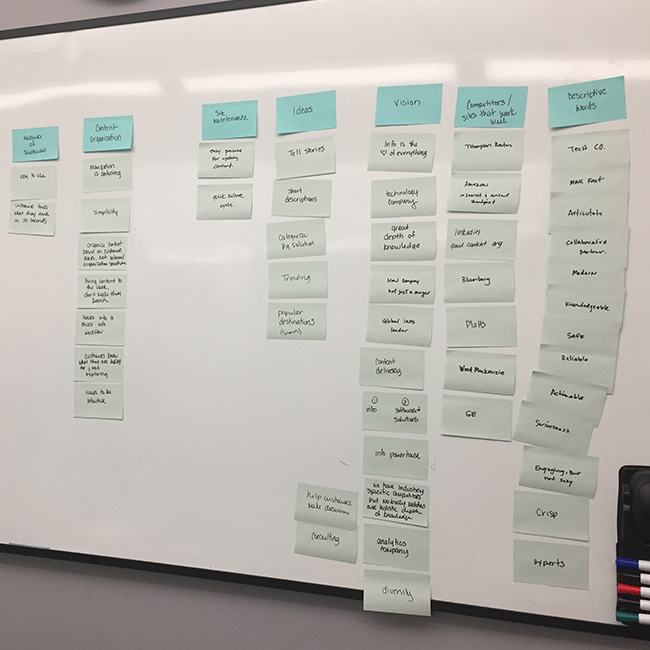 Measures
of
Success
easy to use
Customer finds
what they need
in 30 seconds
Content
Organization
Navigation
is confusing
Simplicity
Organize content
based on customer
needs, not internal
organization structure
Bring content to
the user,
don't make them
search
macro info &
micro info
Customers know
what they are looking
for / not
exploring
needs to be
intuitive
Site
Maintenance
easy process
for updating
content
quick release
cycle
Ideas
Tell stories
short
descriptions
Categorize
by solution
Trending
popular
destinations
(search)
help customers
make decisions
Consulting
Vision
Info is the
♡ of everything
technology
company
great
depth of
knowledge
New company
not just a merger
Global info
leader
Content
delivery
① ②
info software
solutions
info powerhouse
we have industry
specific competitors
but nobody matches
our holistic depth
of knowledge
analytics
company
diversity
Competitors/
sites that work
well
Thompson Reuters
Amazon
→ search & content
standpoint
linkedin
good content org
Bloomberg
Platts
Wood Mackenzie
GE
Descriptive
Words
Tech Co.
Move Fast
Articulate
Collaborative
partner
Modern
Knowledgeable
SAFE
Reliable
Actionable
Seriousness
Engaging, But
not sexy
Crisp
experts